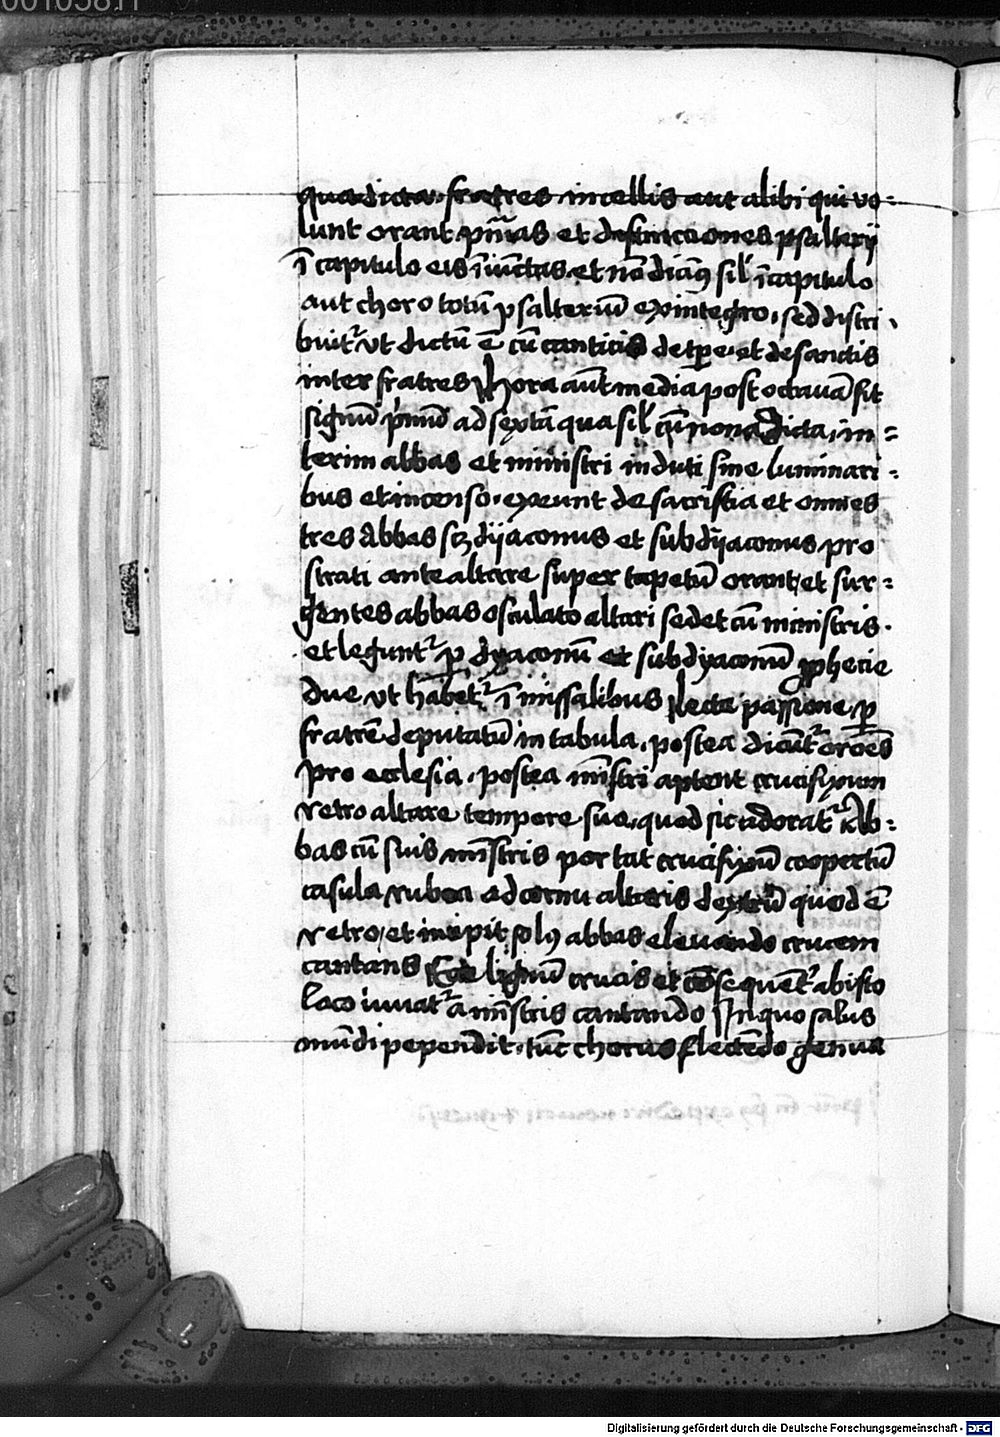 00105811
qua dicta. fratres in cellis aut alibi qui vo=
lunt orant p̄n̄ias et distincciones psalterij
ī capitulo eis īiūctas et nō dicāt sil' ī capitulo
aut choro totū psalteriū ex integro, sed distri
buit᷑ vt dictū ē cū canticis de tp̄e et de sanctis
inter fratres Hora aūt media post octauā fit
signū p̄mū ad sextā qua sil' cū nona dicta, in=
terim abbas et ministri induti sine luminari=
bus et incenso exeunt de sacristia et omnes
tres Abbas scꝫ dijaconus et subdijaconus pro
strati ante altare super tapetū orant, et sur=
gentes abbas osculato altari sedet cū ministris.
et legunt᷑ ꝑ dyaconū et subdyaconū ꝓphecie
due vt habēt᷑ ī missalibus lecta passione, ꝑ
fratrē deputatū in tabula, postea dicūt᷑ or̄oēs
pro ecclesia, postea mīstri aptent crucifixum
retro altare tempore suo, quod sic adorat᷑ Ab=
bas cū suis mīstris portat crucifixū coopertū
casula rubea ad cornu altaris dextrū quod ē
retro, et incipit solꝰ abbas eleuando crucem
cantans Ecce lignū crucis et cōsequēt᷑ ab isto
loco iuuat᷑ a mīstris cantando In quo salus
mūdi pependit, tūc chorus flectēdo genua
Digitalisierung gefördert durch die Deutsche Forschungsgemeinschaft - DFG